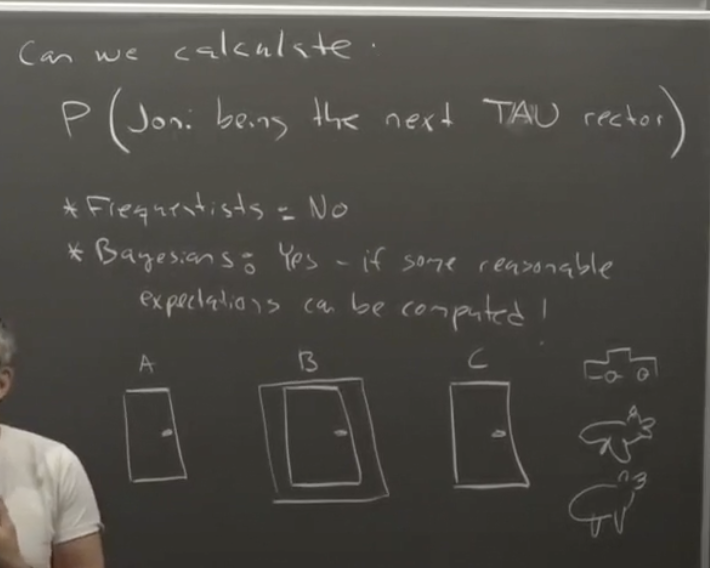 Can we calculate.
P(Joni being the next TAU rector)
* Frequentists: No
* Bayesians: Yes - if some reasonable
expectations can be computed!
A B C